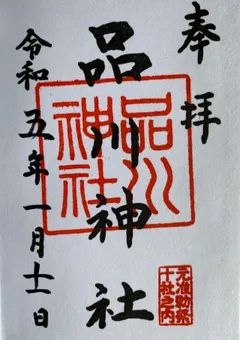 奉拝
品川神社
品川神社
元准勅祭
十社之内
令和五年一月十一日